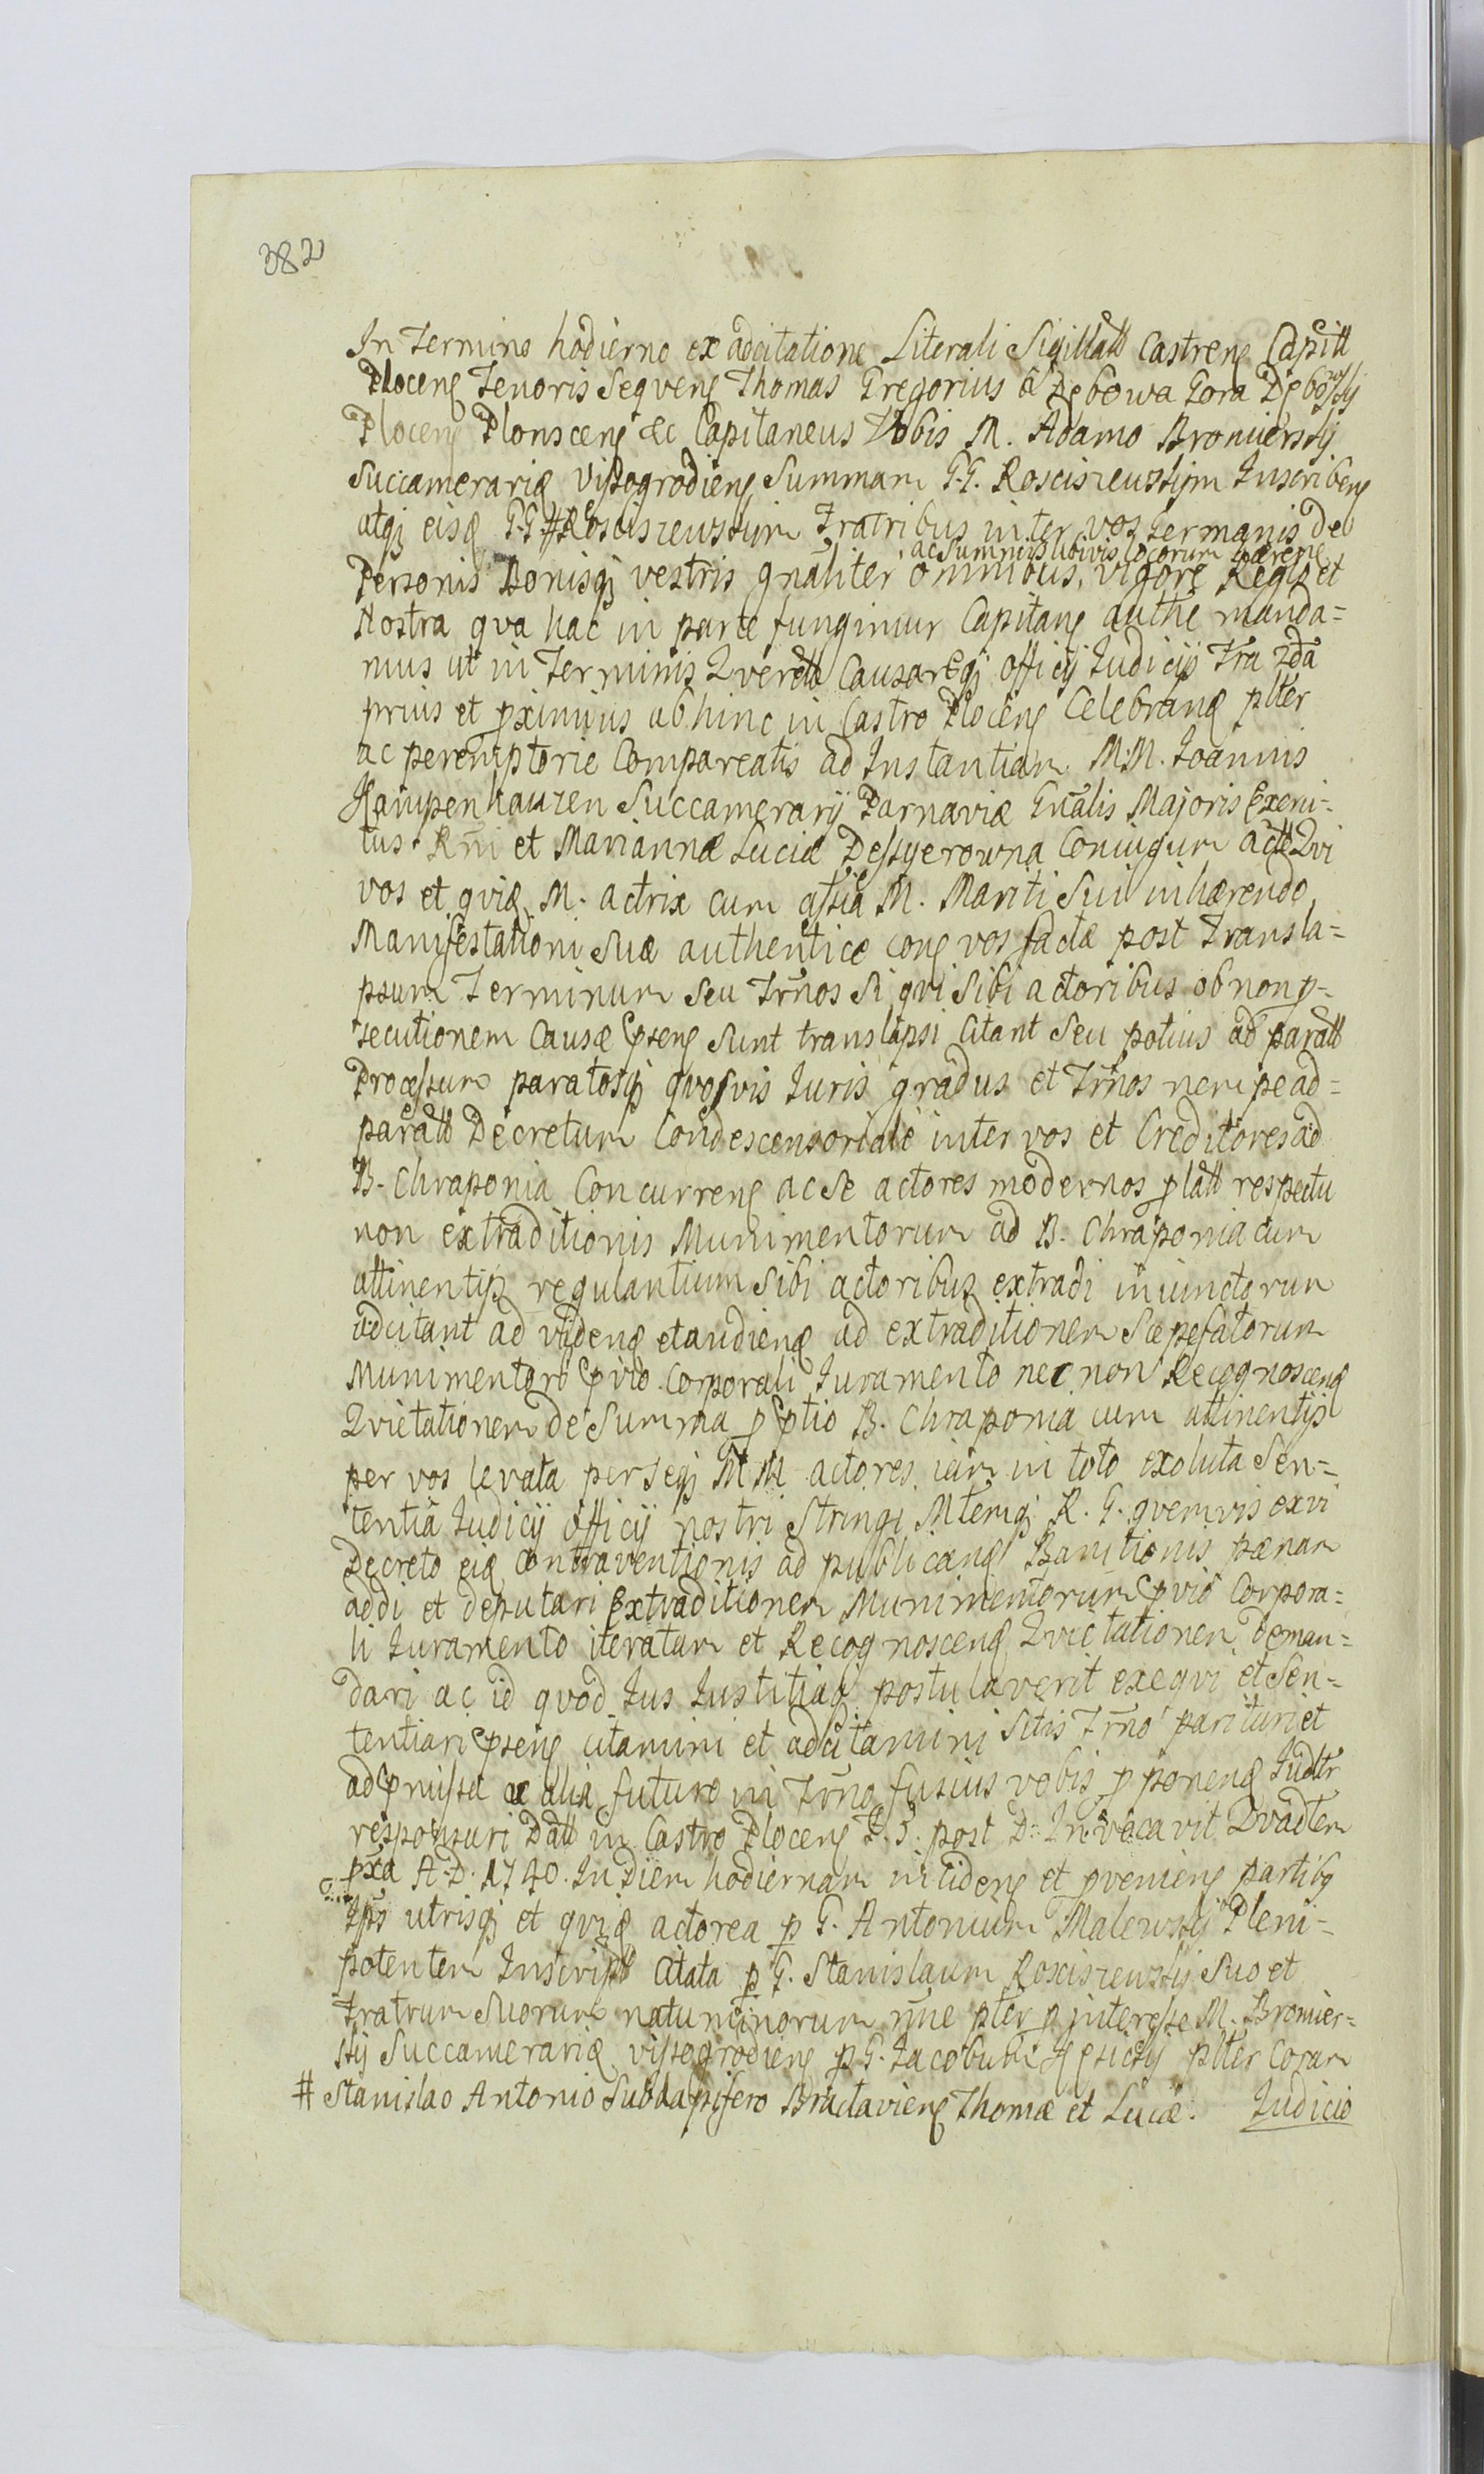 382
In Termino hodierno ex adcitatione Literali Sigillatt Castrens Capitt
Plocens Tenoris Seqvens Thomas Gregorius a Debowa Gora Debowsky
Plocens Plonscens &c Capitaneus Vobis M. Adamo Bronierssky
Succamerario Vissogrodiens Summam G.G. Roscisrewskym Inscribens
atq eisd G.G. # Roscisrewskim Fratribus inter vos Germanis De
ac Summis ubivis locorum hærens
Personis Bonisq vestris gnaliter omnibus, vigore Regia et
Nostra qva hac in parte fungimur Capitans authe manda=
mus ut in Terminis Qverell Causarq officij Iudicijs Fra 2da
prius et pximius abhinc in Castro Plocens Celebrand plter
ac peremptorie Compareatis ad Instantiam M.M. Ioannis
Kampenhauzen Succamerarij Parnaviæ Gnalis Majoris Exerci=
tus Rni et Mariannæ Luciæ Desszerowna Coniugum actt Qvi
vos et qvid M. actrix cum assia M. Mariti Sui inhærendo
Manifestationi Suæ authentice cons vos factæ post Transla=
psum Terminum Seu Trnos Si qvi Sibi actoribus ob non p=
secutionem Causæ psens Sunt translapsi Citant Seu potius ad paratt
Processum paratosq qvosvis Iuris gradus et Trnos nempe ad=
paratt Decretum Condescensoriale inter vos et Creditores ad
B. Chraponia Concurrens ac Se actores modernos platt respectu
non extraditionis Munimentorum ad B. Chraponia cum
attinentijs regulantium Sibi actoribus extradi iniunctorum
adcitant ad vidend et audiend ad extraditionem Sæpefatorum
Munimentoru pvio Corporali Iuramento nec non Recognoscend
Qvietationem de Summa p ptio B. Chraponia cum attinentijs
per vos levata per Seq M M actores iam in toto exoluta Sen=
tentia Iudicij officij nostri Stringi Mtemq R. G. qvemvis ex vi
Decreto eiq contraventionis ad publicand Banitionis pænam
addi et deputari Extraditionem Munimentorum pvio Corpora=
li Iuramento iteratam et Recognoscend Qvietationem deman=
dari ac id qvod Ius Iustitiaq postulaverit exeqvi et Sen=
tentiari psens citamini et adcitamini Sitis Trno parituri et
ad pmissa a alia futuro in Trno fusius vobis pponend Iudltr
responsuri Datt in Castro Plocens F. 3. post D. Invocavit Qvadtem
pxa A.D. 1740. In Diem hodiernam incidens et pveniens partibq
Ips utrisq et qvid actorea p G. Antonium Malewsky Pleni=
potentem Inscript Citata p G. Stanislaum Roscisrewsky Suo et
Fratrum Suorum natu minorum nne pter p interesse M. Bronier=
sky Succamerario vissogrodiens p G. Iacobum plter Coram
# Stanislao Antonio Subdapifero Braclaviens Thomæ et Luciæ. Iudicio